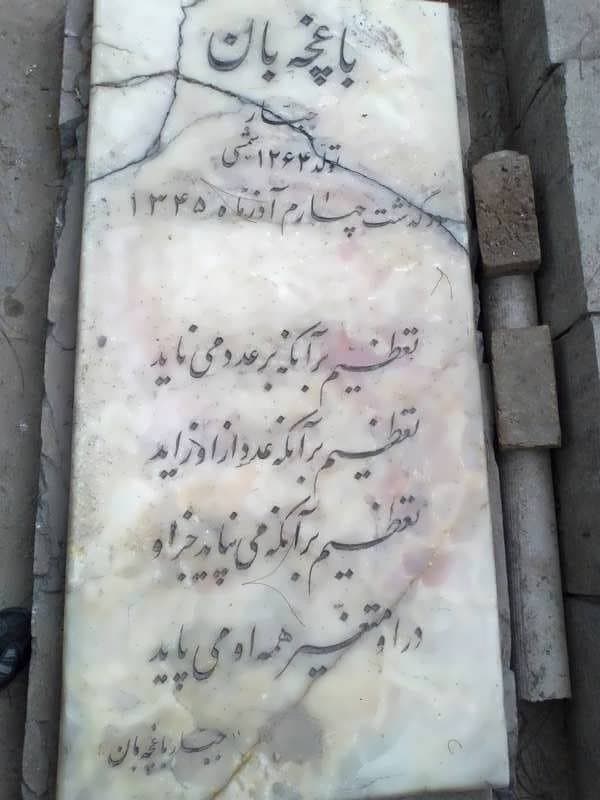 باغچه بان
جبار
تولد ۱۲۶۴ شمسی
درگذشت چهارم آذرماه ۱۳۴۵
تعظیم بر آنکه بر عدد می ناید
تعظیم بر آنکه عدد از او زاید
تعظیم بر آنکه می نپاید جز او
در او متغیر همه او می پاید
جبار باغچه بان